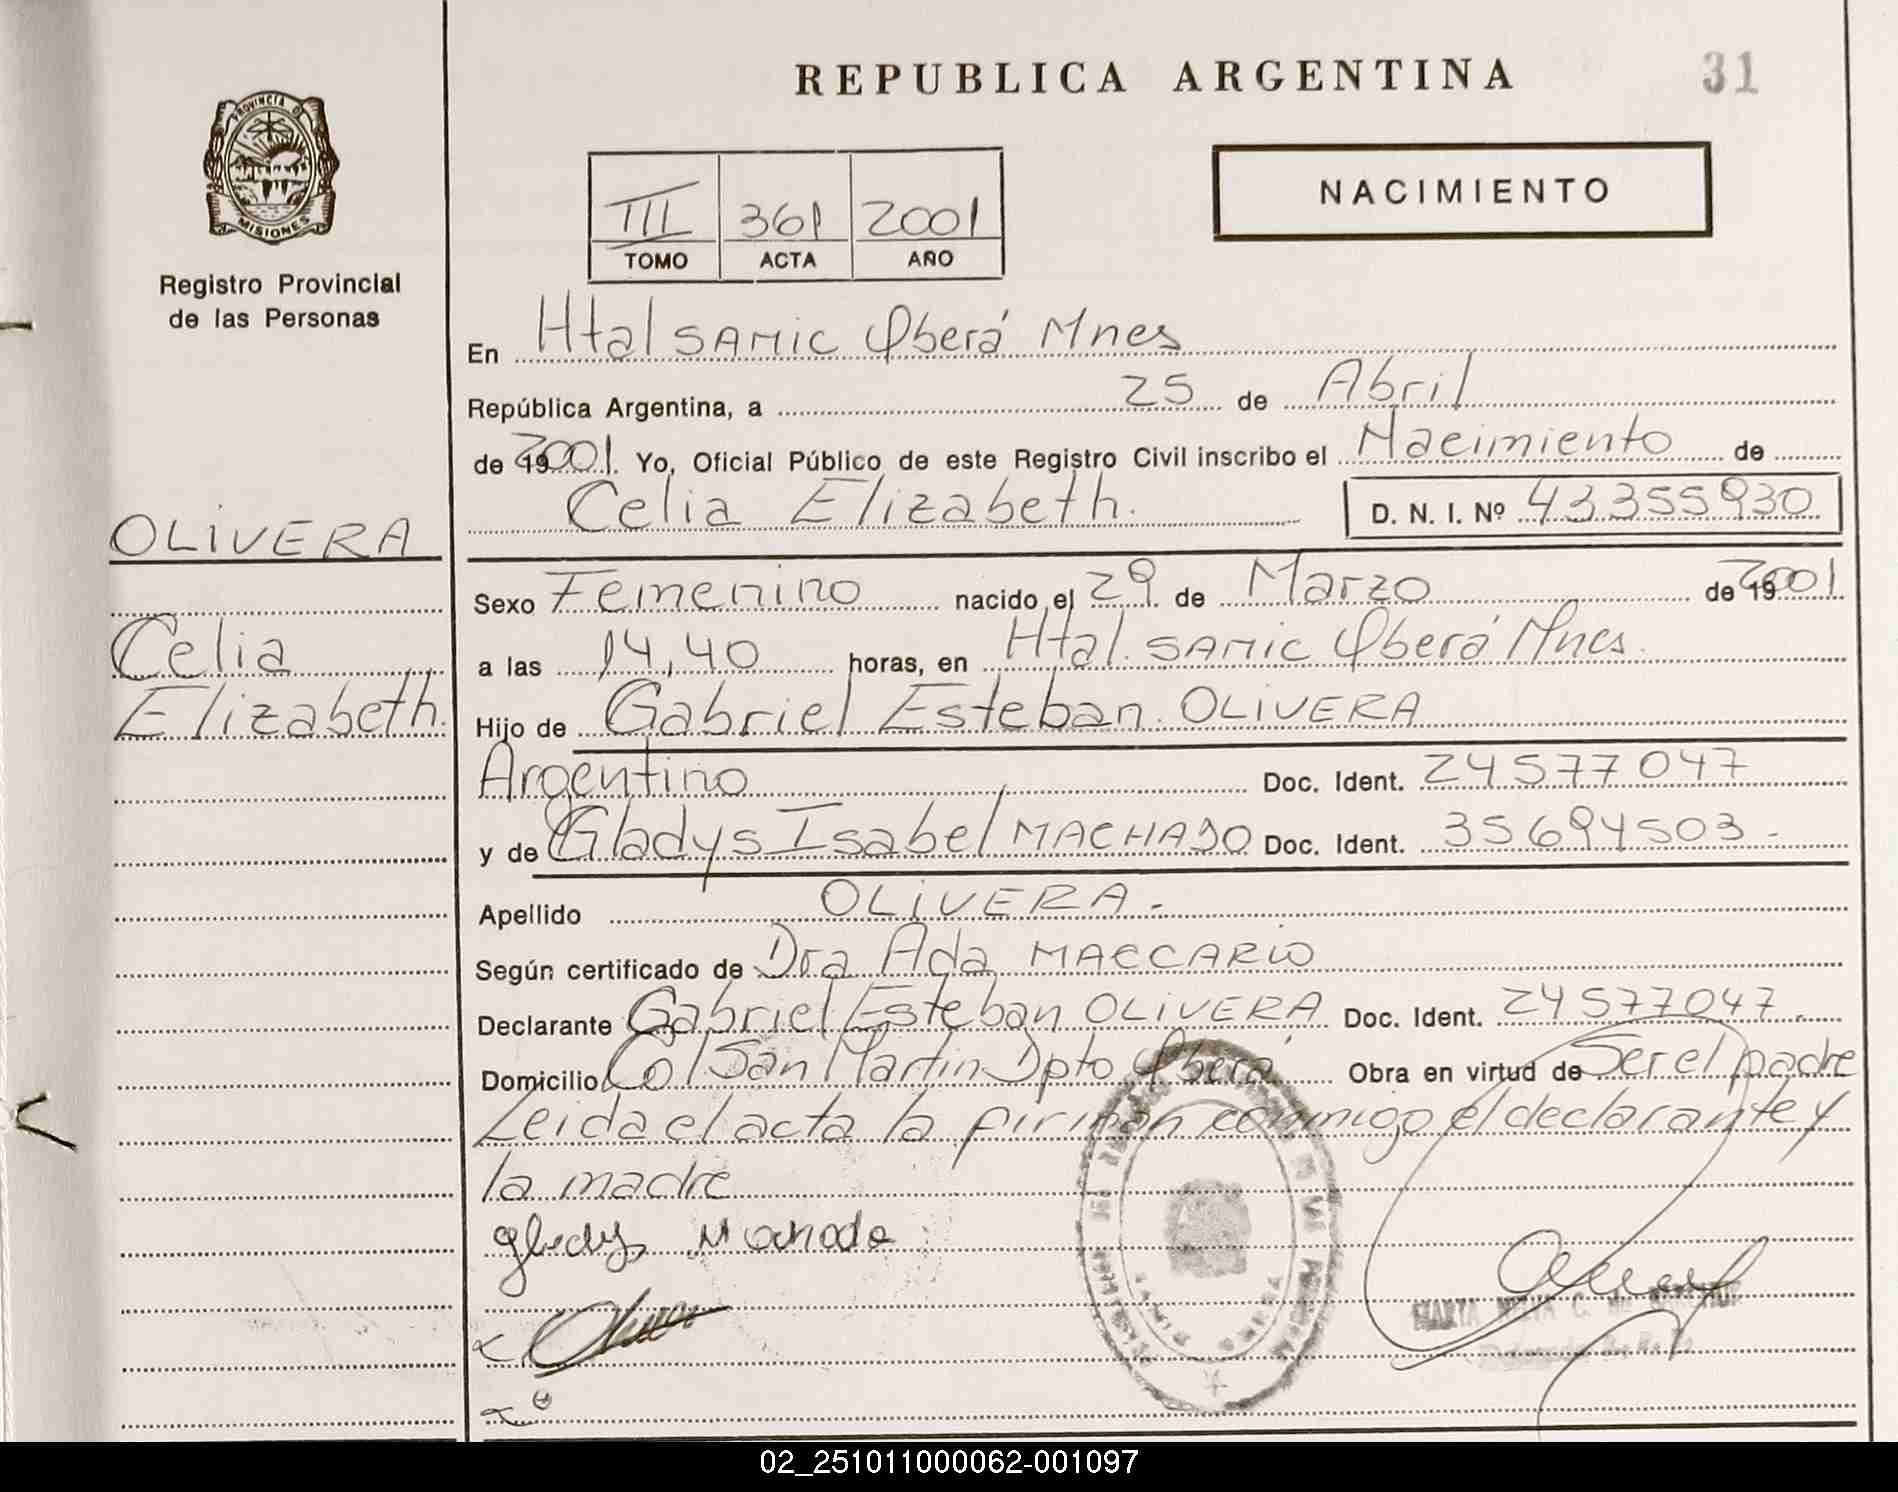 REPUBLICA ARGENTINA
31
PROVINCIA D
MISIONES
Registro Provincial
de las Personas
III 361 2001
TOMO ACTA AÑO
NACIMIENTO
En Htal SAMIC Oberá Mnes
República Argentina, a 25 de Abril
de 19 2001. Yo, Oficial Público de este Registro Civil inscribo el Nacimiento de
Celia Elizabeth. D. N. I. Nº 43355930
OLIVERA
Celia
Elizabeth.
Sexo Femenino nacido el 29 de Marzo de 19 2001
a las 14,40 horas, en Htal. SAMIC Oberá Mnes.
Hijo de Gabriel Esteban OLIVERA
Argentino Doc. Ident. 24577047
y de Gladys Isabel MACHADO Doc. Ident. 35694503-
Apellido OLIVERA-
Según certificado de Dra Ada MACCARIO
Declarante Gabriel Esteban OLIVERA Doc. Ident. 24577047
Domicilio Col San Martin Dpto Oberá Obra en virtud de Ser el padre
Leida el acta la firman conmigo el declarante y
la madre
gladys Machado
MARTA C.
02_251011000062-001097